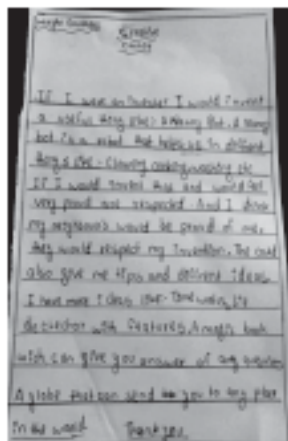 Simple
If I were an inventor I would invent
a useful thing like:- a Nanny Bot. A Nanny
bot is a robot that helps us in different
things like:- Cleaning cooking washing etc
If I would invent this and would feel
very proud and respected. And I think
my neighbours would be proud of me.
they would respect my invention. The could
also give me tips and different ideas
I have more ideas like:-
with features, A magic book
wich can give you answer of any question
A globe that can send you to any place
in the world Thank you